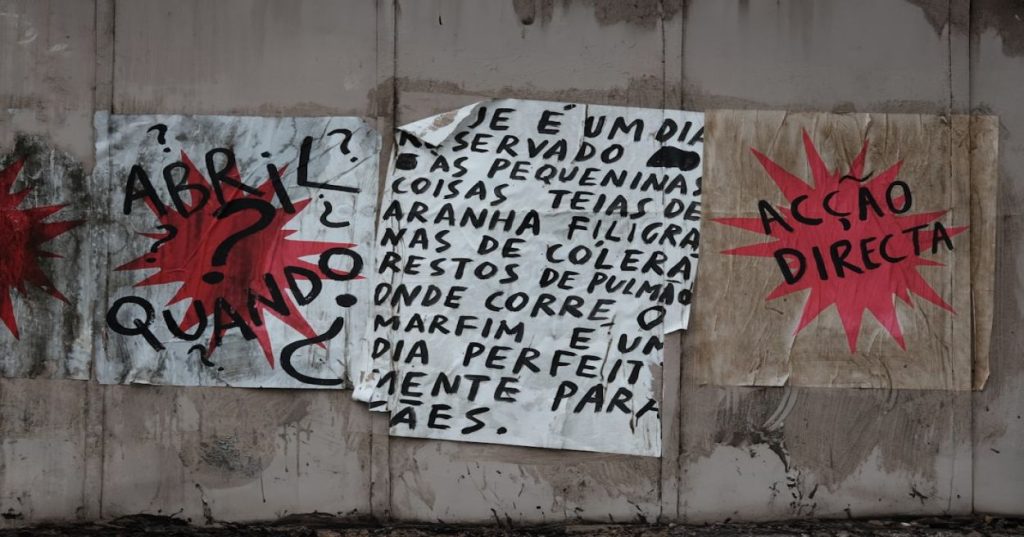 ABRIL
?
QUANDO?
JE É UM DIA
SERVADO
ÀS PEQUENINAS
COISAS TEIAS DE
ARANHA FILIGRA
NAS DE CÓLERA
RESTOS DE PULMÃO
ONDE CORRE O
MARFIM É UM
DIA PERFEIT
MENTE PARA
ÃES.
ACÇÃO
DIRECTA